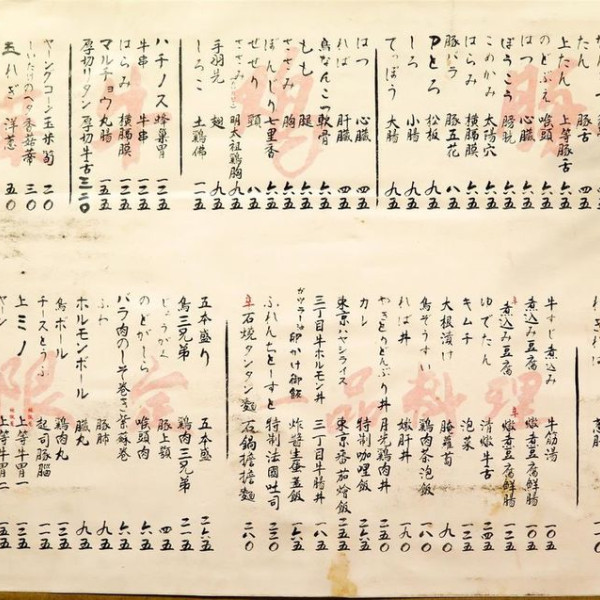 たん 豚舌 六五
上たん 上等豚舌
のどぶえ 喉頭 六五
はつ 心臓 四五
ぼうこう 膀胱 六五
こめかみ 太陽穴 六五
はらみ 横膈膜 六五
豚バラ 豚五花 八五
Pとろ 松板 九五
しろ 小腸 九五
てっぽう 大腸 九五
はつ 心臓 四五
ればー 肝臓 四五
鳥なんこつ 軟骨 六五
もも 腿 六五
ささみ 胸 六五
ぼんじり 七里香 六五
せせり 頸 八五
ささみ明太 明太祖鶏胸 九五
手羽先 翅 九五
しろこ 土鶏佛 一五五
ハチノス 蜂巣胃 一三五
牛串 牛串
はらみ 横膈膜
マルチョウ 丸腸 一五五
厚切りタン 厚切牛舌 三二〇
ヤングコーン 玉米筍 二〇
しいたけのヘタ 香菇蒂 三〇
玉ねぎ 洋蔥 五〇
豚
鳥
牛すじ煮込み 牛筋湯 一〇五
煮込み豆腐 燉煮豆腐鮮腸 一〇五
煮込み豆腐 燉煮豆腐鮮腸 一二五
ゆでたん 清燉牛舌 二四五
キムチ 泡菜 一二五
大根漬け 醃蘿蔔 九〇
鳥ぞうすい 鶏肉茶泡飯
れば丼 嫩肝丼 一九〇
やきとりどんぶり丼 月光鶏肉丼 二五〇
カレー 特制咖哩飯 二六五
東京ハヤシライス 東京番茄燴飯 二五五
三丁目牛ホルモン丼 三丁目牛腸丼 一八五
卵かけ御飯 炸醬生蛋蓋飯 一六五
ふれんちとーすと 特制法國吐司 二三五
石焼タンタン麺 石鍋擔擔麵 二八〇
一品料理
五本盛り 五本盛 二六五
鳥三兄弟 鶏肉三兄弟 二一五
じょうがく 豚上顎 四五
のどがしら 喉頭肉 六五
バラ肉のしそ巻き 紫蘇巻 六五
ふわ 豚肺 九五
ホルモンボール 臓丸 九五
鳥ボール 鶏肉丸 一三五
チーズとうふ 起司豚腦 一三五
上ミノ 上等牛胃一 一五五
限定